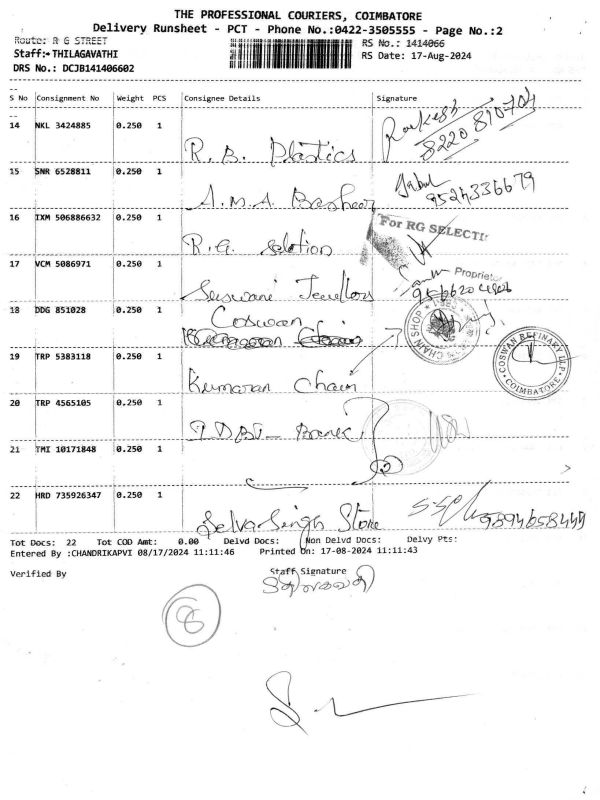 THE PROFESSIONAL COURIERS, COIMBATORE
Delivery Runsheet - PCT - Phone No.:0422-3505555 - Page No.:2
Route: R G STREET
RS No.: 1414066
Staff:-THILAGAVATHI
RS Date: 17-Aug-2024
DRS No.: DCJB141406602
S No Consignment No Weight PCS Consignee Details Signature
14 NKL 3424885 0.250 1 R. B. Plastics Rakesh 8220 810704
15 SNR 6528811 0.250 1 A.M.A. Basheer 9524336679
16 IXM 506886632 0.250 1 R.G. selation For RG SELECTI
Proprietor
17 VCM 5086971 0.250 1 Jewellors
18 DDG 851028 0.250 1 Coswan
CHAIN SHOP
19 TRP 5383118 0.250 1 Kumaran Chain
COSWAN REFINARY LLP
COIMBATORE
20 TRP 4565105 0.250 1 IDBI Bank
21 TMI 10171848 0.250 1
22 HRD 735926347 0.250 1 Selva Singh Store 9894658449
Tot Docs: 22 Tot COD Amt: 0.00 Delvd Docs: Non Delvd Docs: Delvy Pts:
Entered By :CHANDRIKAPVI 08/17/2024 11:11:46 Printed On: 17-08-2024 11:11:43
Verified By
Staff Signature
8